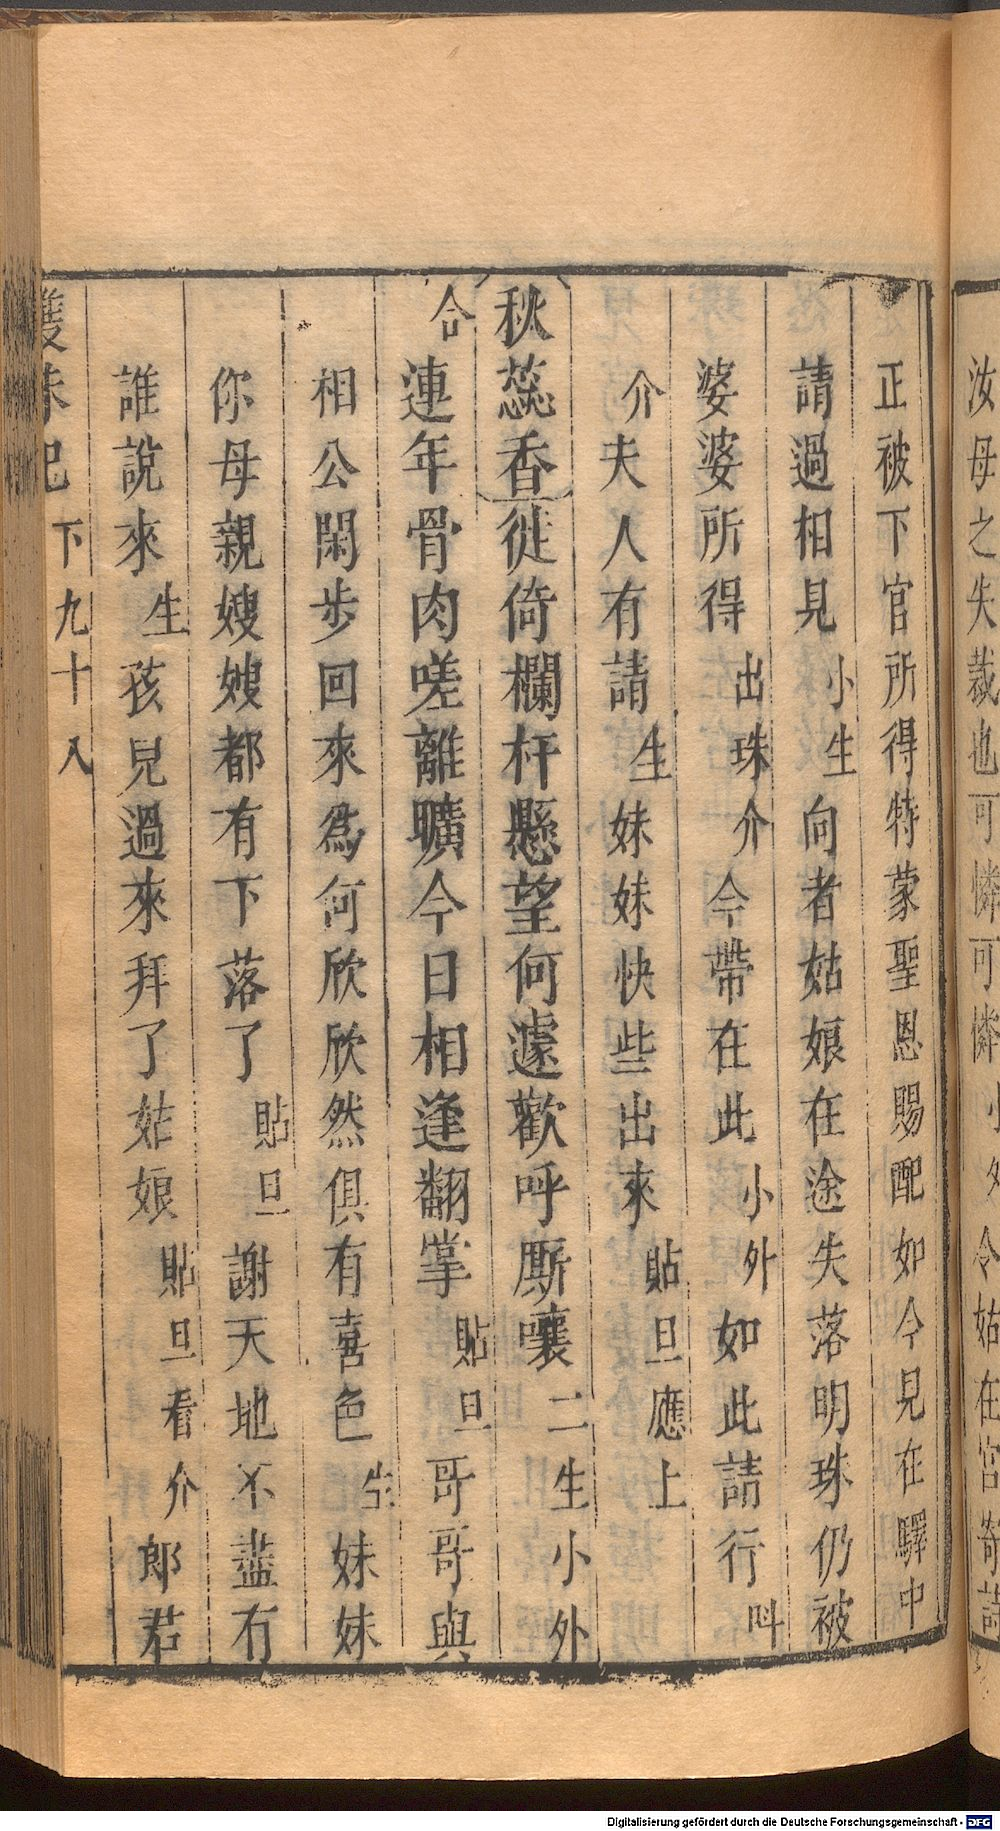 汝母之失裁也可憐可憐小外令姑在宮寄詩
正被下官所得特蒙聖恩賜配如今見在驛中
請過相見小生向者姑娘在途失落明珠仍被
婆婆所得出珠介今帶在此小外如此請行叫
介夫人有請生妹妹快些出來貼旦應上
秋蕊香徙倚欄杆懸望何遽歡呼厮嚷二生小外
合連年骨肉嗟離曠今日相逢翻掌貼旦哥哥與
相公閑步回來爲何欣欣然俱有喜色生妹妹
你母親嫂嫂都有下落了貼旦謝天地不盡有
誰說來生孩兒過來拜了姑娘貼旦看介郎君
雙珠記 下 九十八
Digitalisierung gefördert durch die Deutsche Forschungsgemeinschaft - DFG